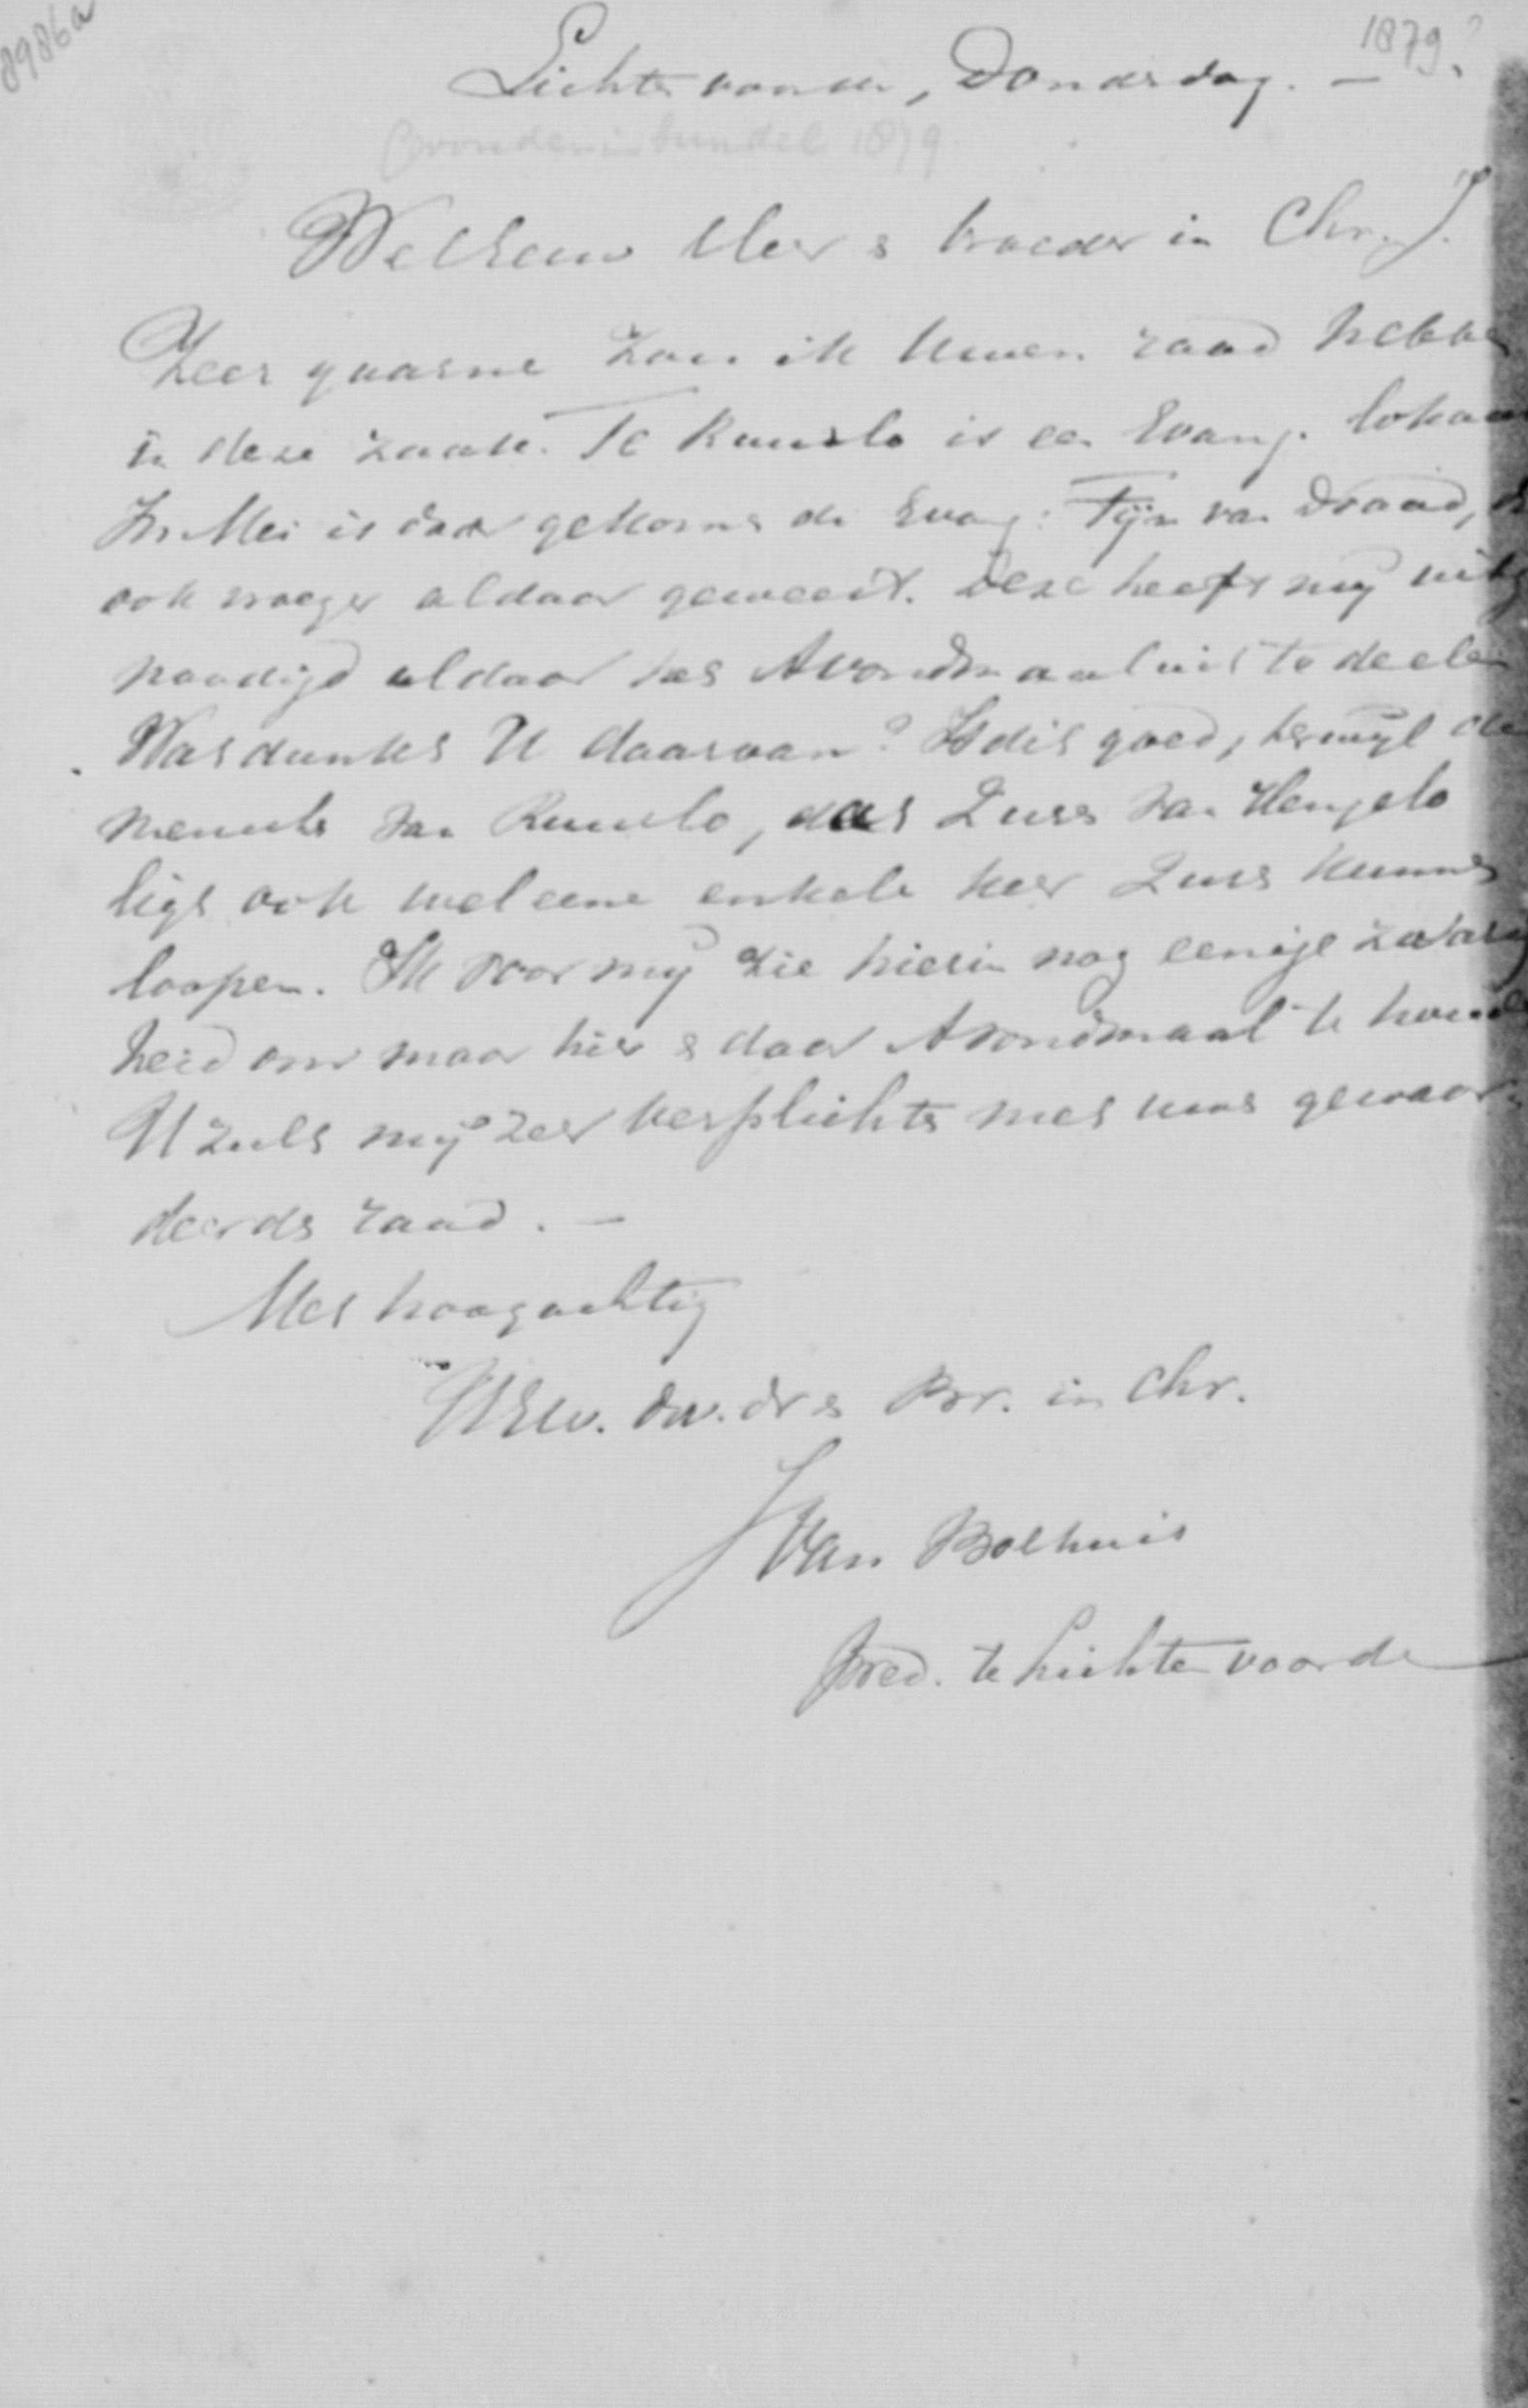 8986a
1879?
Lichtenvoorde, Donderdag. —
Gevonden in bundel 1879.
WelEerw Heer & broeder in Chr. J.
Zeer gaarne zou ik Uwen raad hebben
in deze zaak. Te Ruurlo is een Evang. lokaal
In Mei is daar gekomen de Evang: Fijn van Draad, 
ook vroeger aldaar geweest. Deze heeft mij uitg
noodigd aldaar het Avondmaal uit te deelen
Wat dunkt U daarvan? Is dit goed, terwijl de
menschen van Ruurlo, dat 2 uur van Hengelo
ligt ook wel eene enkele keer 2 uur kunnen
loopen. Ik voor mij zie hierin nog eenige zwarig
heid om maar hier & daar Avondmaal te houden
U zult mij zeer verplichten met uws gewaar-
deerds raad. —
Met hoogachting
UEw. dw. dr & Br. in Chr.
J van Bolhuis
pred. te Lichtenvoorde